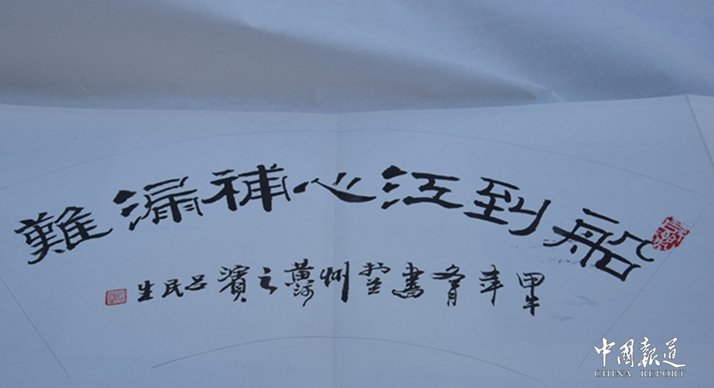 船到江心補漏難
甲午年冬月書於兰州黄河之濱吕民生
中國報道
CHINA REPORT